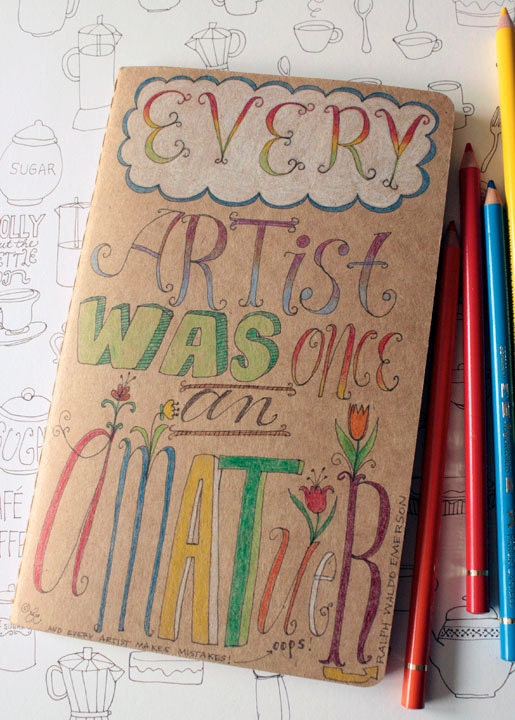 EVERY
ARTist
WAS ONCE
an
aMATueR
RALPH WALDO EMERSON
AND EVERY ARTIST MAKES MISTAKES!
OOPS!
SUGAR
OLLY
ut the
ETTLE
on